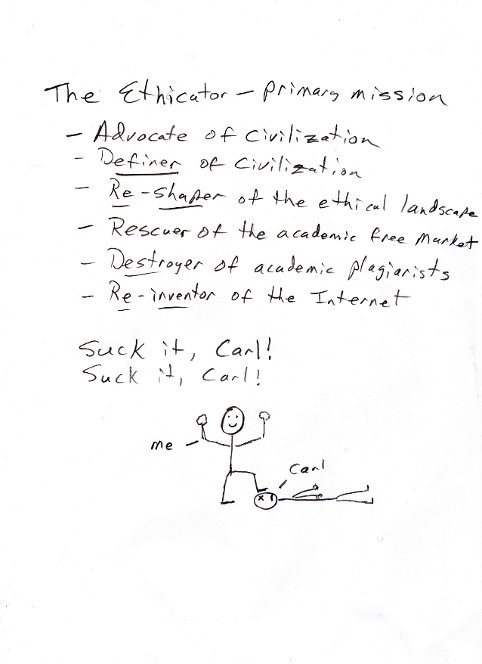 The Ethicator - primary mission
- Advocate of civilization
- Definer of civilization
- Re-shaper of the ethical landscape
- Rescuer of the academic free market
- Destroyer of academic plagiarists
- Re-inventor of the Internet
Suck it, Carl!
Suck it, Carl!
me -
Carl